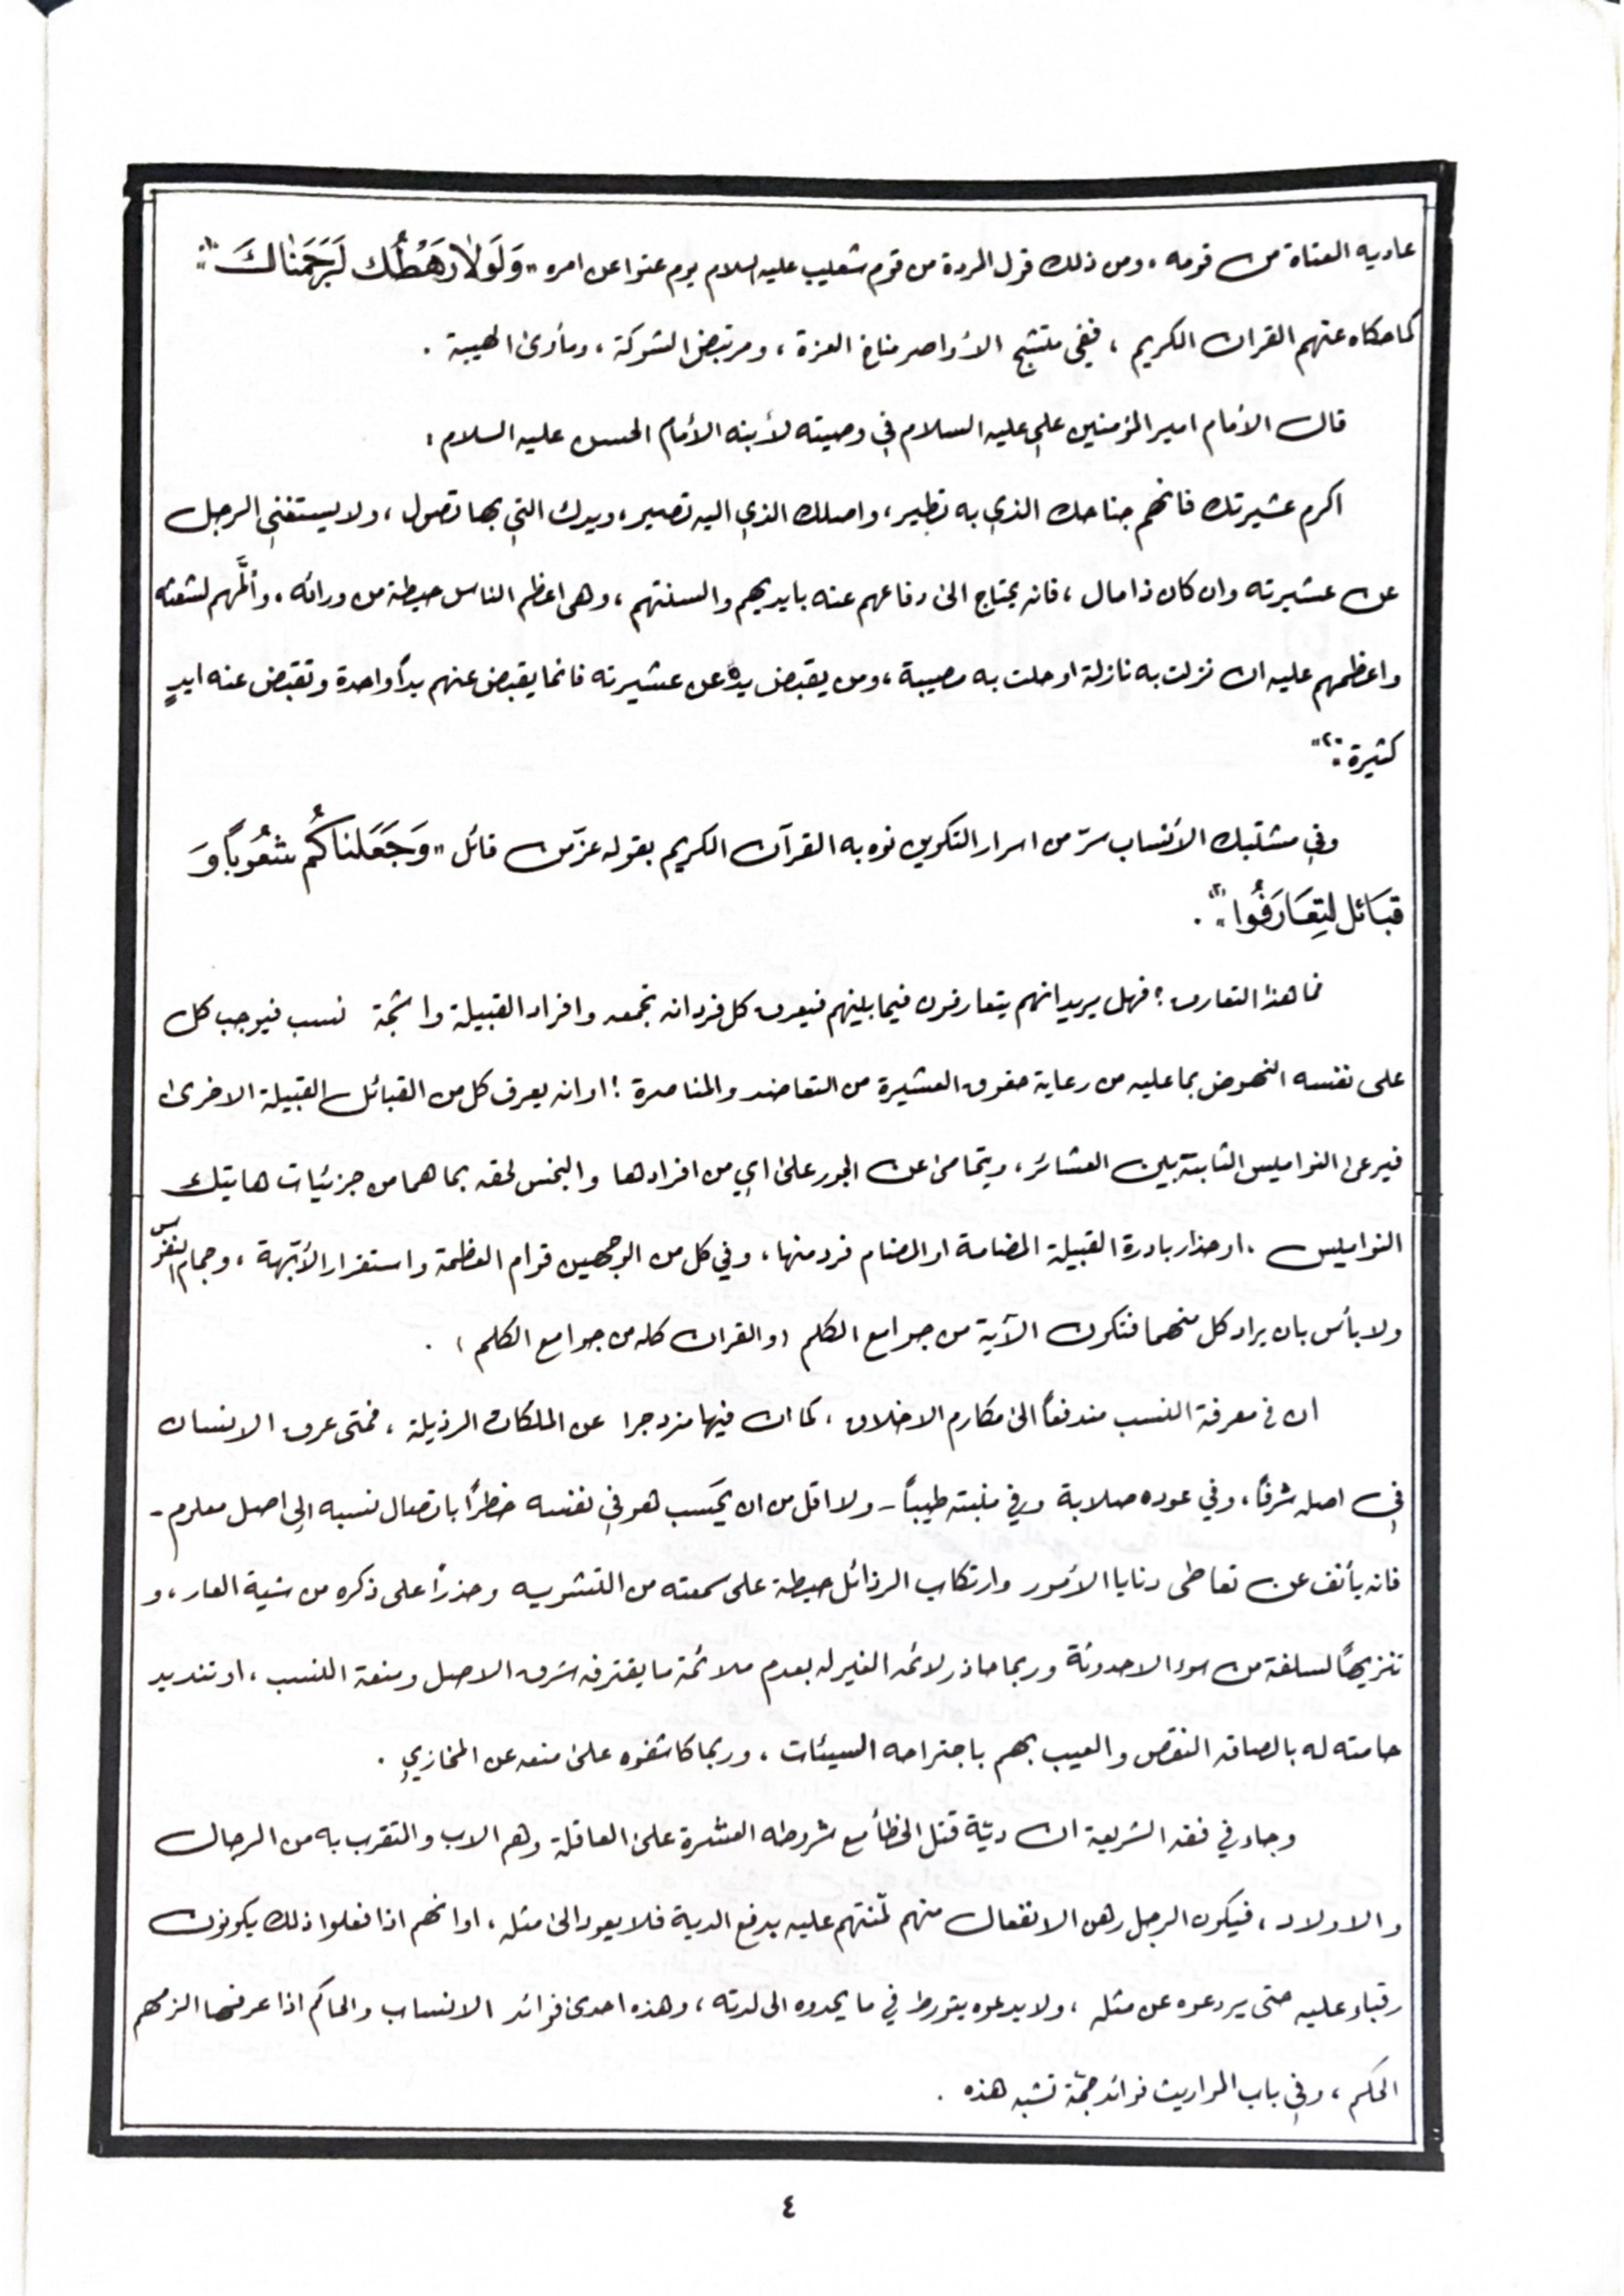 عاديه العتاة من قومه ، ومن ذلك قول المردة من قوم شعيب عليه السلام يوم عتوا عن امره "وَلَولاٰ رَهْطُك لَرَجَمْنٰاكَ" "١"
كما حكاه عنهم القران الكريم ، ففي متشج الأواصر مناخ العزة ، ومرتبض الشوكة ، ومأوىٰ الهيبة .
قال الأمام امير المؤمنين علي عليه السلام في وصيته لأبنه الأمام الحسن عليه السلام :
اكرم عشيرتك فانهم جناحك الذي به تطير ، واصلك الذي اليه تصير ، ويدك التي بها تصول ، ولا يستغني الرجل
عن عشيرته وان كان ذا مال ، فانه يحتاج الىٰ دفاعهم عنه بايديهم والسنتهم ، وهي اعظم الناس حيطة من ورائه . وألمَّهم لشعثه
واعظمهم عليه ان نزلت به نازلة او حلت به مصيبة ، ومن يقبض يده عن عشيرته فانما يقبض عنهم يداً واحدة وتقبض عنه ايدٍ
كثيرة : "٢"
وفي مشتبك الأنساب سرّ من اسرار التكوين نوه به القرآن الكريم بقوله عزّ من قائل "وَجَعَلناكُم شعُوباً وَ
قبَائل لِتعَارَفُوا" "٣" .
فما هذا التعارف ؟ فهل يريد انهم يتعارفون فيما بينهم فيعرف كل فرد انه تجمعه وافراد القبيلة واشجة نسب فيوجب كل
على نفسه النهوض بما عليه من رعاية حقوق العشيرة من التعاضد والمناصرة ! او انه يعرف كل من القبائل القبيلة الاخرىٰ
فيرعىٰ النواميس الثابتة بين العشائر ، ويتحامىٰ عن الجور علىٰ اي من افرادها والبخس لحقه بما هما من جزئيات هاتيك
النواميس ، او حذار بادرة القبيلة المضامة او المضام فرد منها ، وفي كل من الوجهين قوام العظمة واستقرار الأبّهة ، وجمام النفوس
ولا بأس بان يراد كل منهما فتكون الآية من جوامع الكلم ( والقران كله من جوامع الكلم ) .
ان في معرفة النسب مندفعاً الىٰ مكارم الاخلاق ، كما ان فيها مزدجرا عن الملكات الرذيلة ، فمتى عرف الانسان
في اصله شرفاً ، وفي عوده صلابة وفي منبته طيباً - ولا اقل من ان يحَسب هو في نفسه خطراً باتصال نسبه الى اصل معلوم -
فانه يأنف عن تعاطى دنايا الأمور وارتكاب الرذائل حيطة على سمعته من التشويه وحذراً على ذكره من شية العار ، و
تنزيهاً لسلفه من سوء الاحدوثة وربما حاذر لائمه الغير له بعدم ملائمة ما يقترفه شرف الاصل ومنعة النسب ، او تنديد
حامته له بالصاقه النقص والعيب بهم باجتراحه السيئات ، وربما كاشفوه علىٰ منعه عن المخازي .
وجاء في فقه الشريعة ان ديّة قتل الخطأ مع شروطه العشرة علىٰ العاقلة وهم الاب والتقرب به من الرجال
والاولاد ، فيكون الرجل رهن الانفعال منهم لمّنتهم عليه بدفع الدية فلا يعود الىٰ مثله ، او انهم اذا فعلوا ذلك يكونون
رقباء عليه حتى يردعوه عن مثله ، ولا يدعوه يتورط في ما يحدوه الى لدته ، وهذه احدىٰ فوائد الانساب والحاكم اذا عرفها الزمهم
الحكم ، وفي باب المواريث فوائد جمّة تشبه هذه .
٤